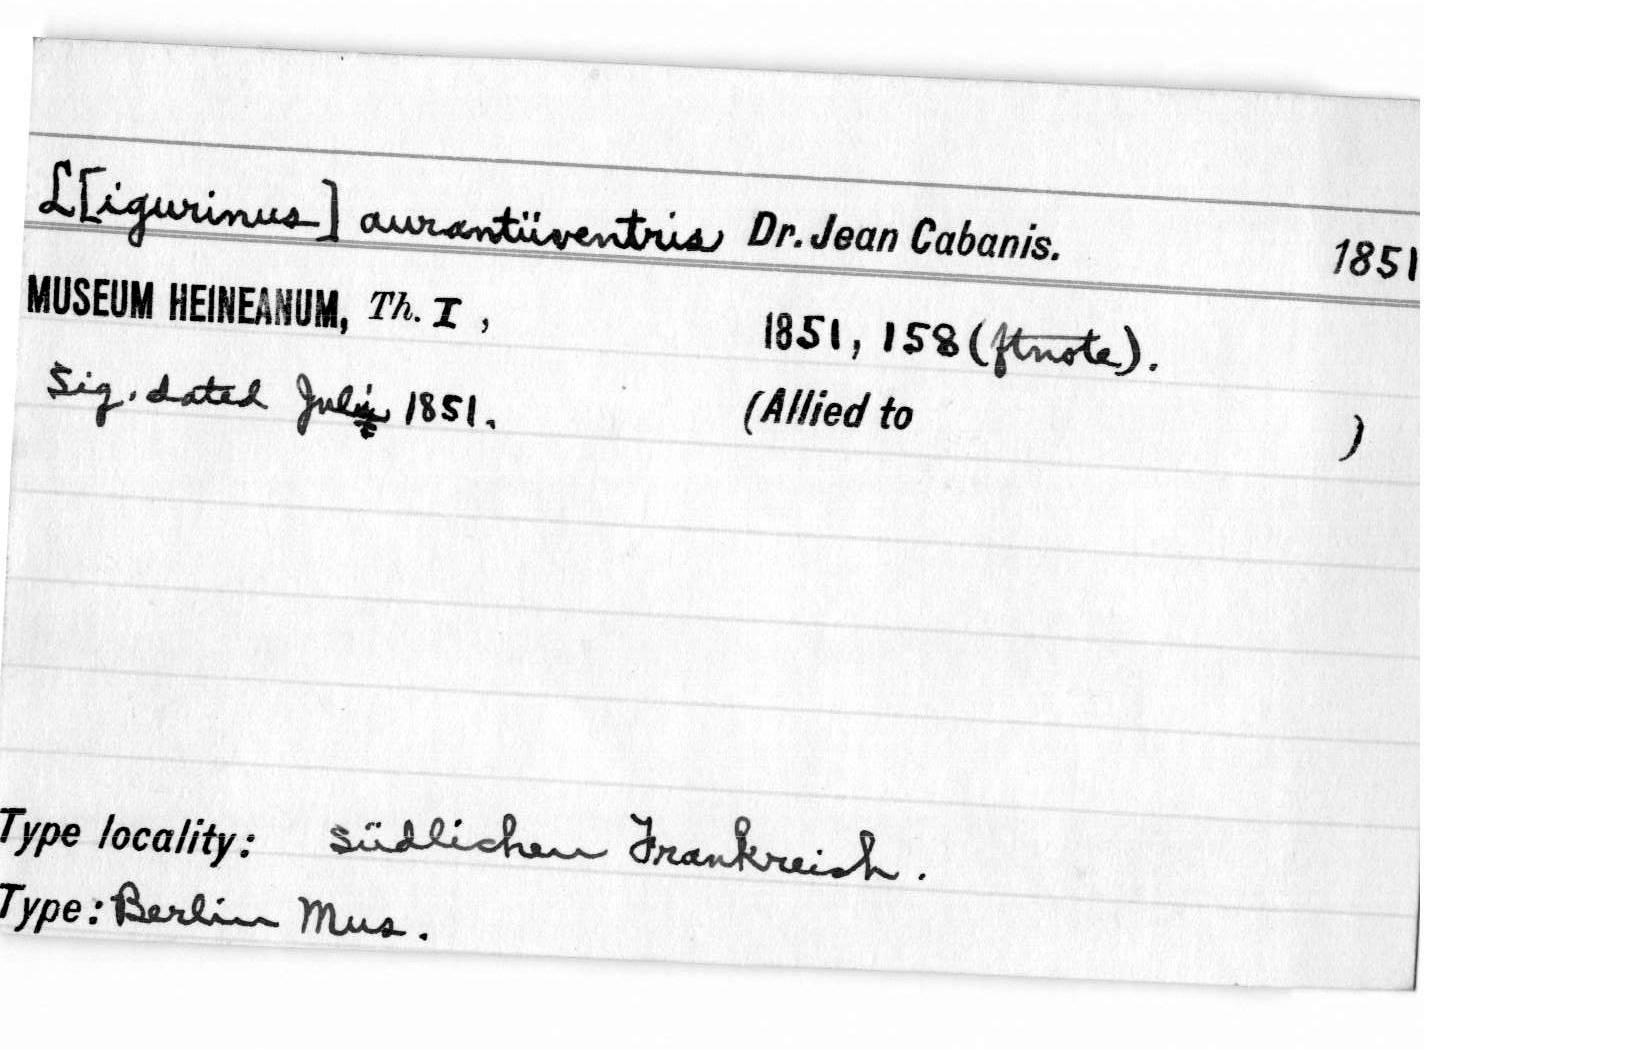 L[igurinus] aurantiiventris Dr. Jean Cabanis. 1851
MUSEUM HEINEANUM, Th. I, 1851, 158 (ftnote).
Sig. dated Juli 1851. (Allied to )
Type locality: südlichen Frankreich.
Type: Berlin Mus.